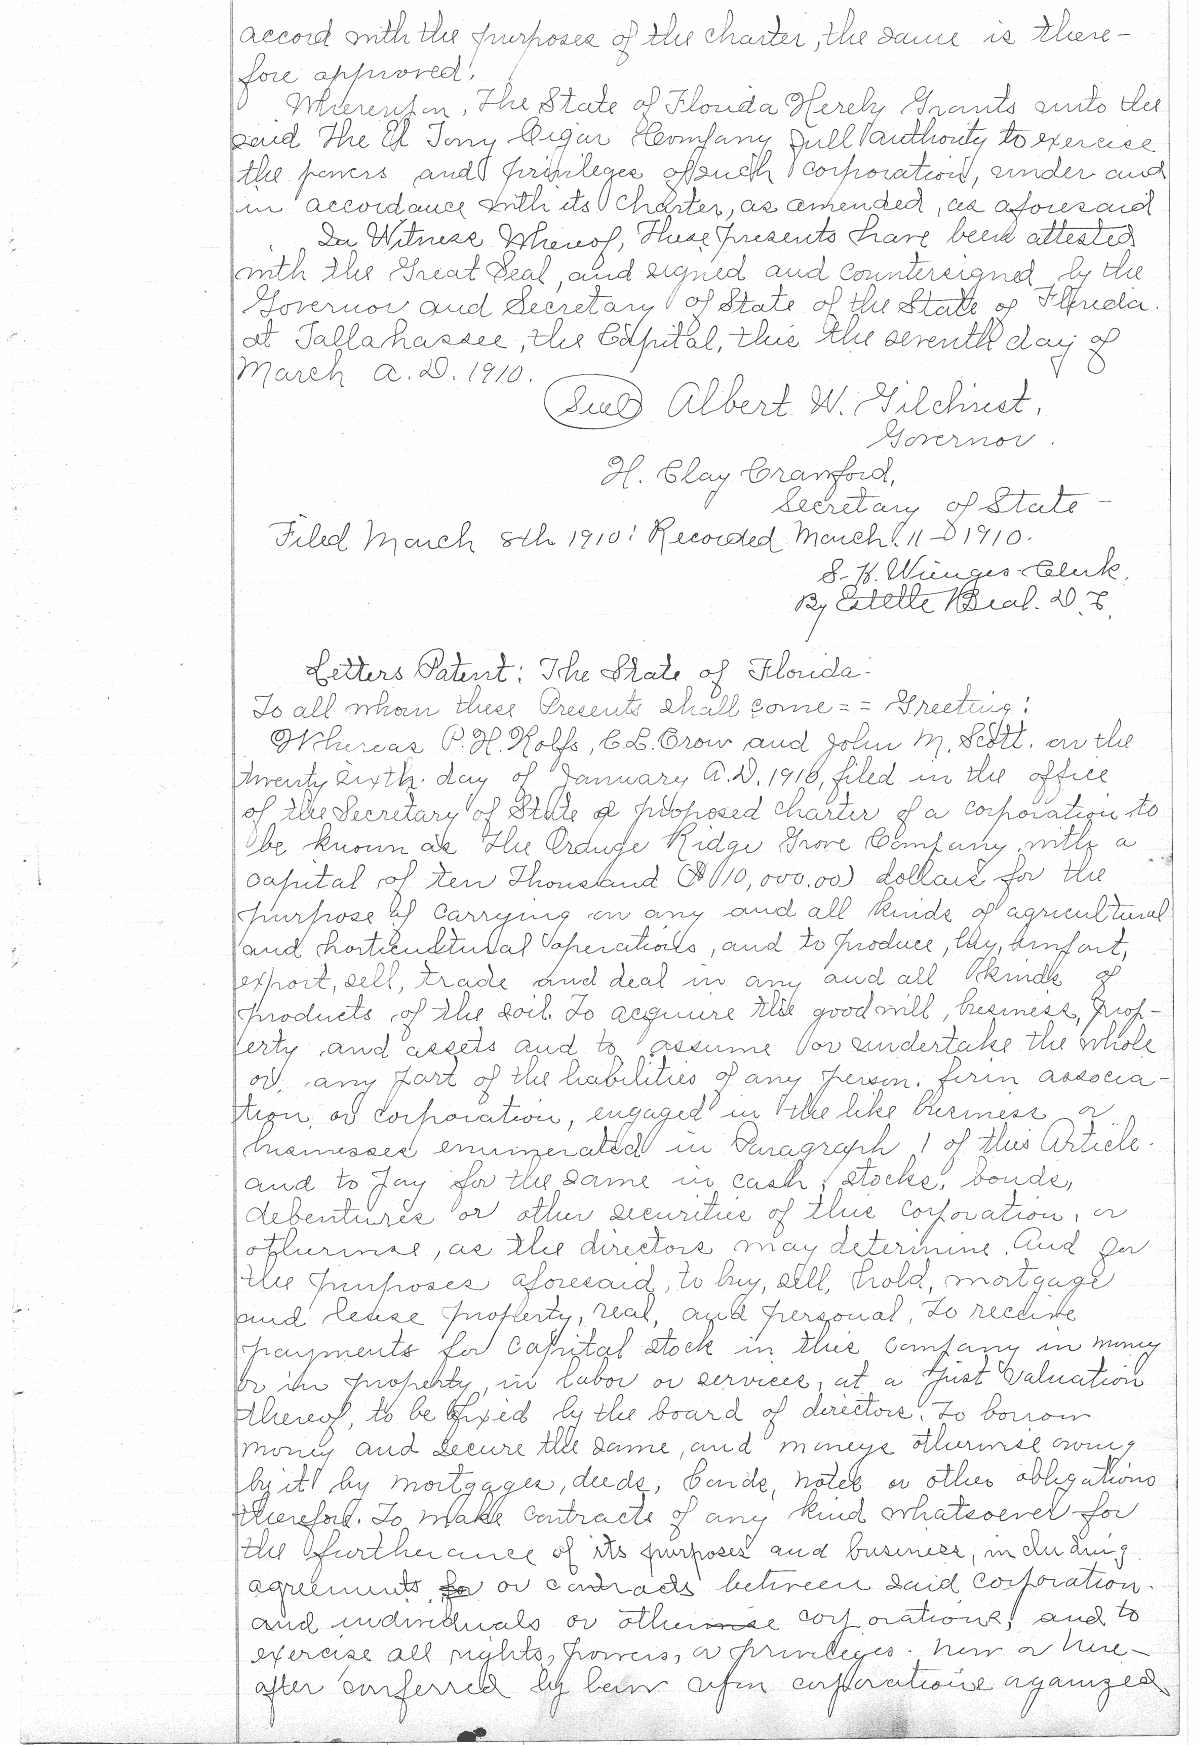 accord with the purposes of the charter, the same is there-
fore approved.
Whereupon, The State of Florida Hereby Grants unto the
said The El Tony Cigar Company full authority to exercise
the powers and privileges of such corporation, under and
in accordance with its charter, as amended, as aforesaid
In Witness Whereof, These presents have been attested
with the Great Seal, and signed and countersigned by the
Governor and Secretary of State of the State of Florida.
at Tallahassee, the Capital, this the seventh day of
March A.D. 1910.
(Seal) Albert W. Gilchrist,
Governor.
H. Clay Crawford,
Secretary of State -
Filed March 8th 1910: Recorded March. 11- 1910.
S. H. Wienges Clerk.
By Estelle Beal. D.C.
Letters Patent: The State of Florida.
To all whom these Presents shall come = = Greeting:
Whereas P.H. Rolfs, C.L. Crow and John M. Scott. on the
twenty sixth. day of January A.D. 1910, filed in the office
of the Secretary of State a proposed charter of a corporation to
be known as The Orange Ridge Grove Company, with a
capital of ten Thousand ($10,000.00) dollars for the
purpose of carrying on any and all kinds of agricultural
and horticultural operations, and to produce, buy, import,
export, sell, trade and deal in any and all kinds of
products of the soil. To acquire the good will, business, prop-
erty and assets and to assume or undertake the whole
or any part of the liabilities of any person. firm associa-
tion or corporation, engaged in the like business or
businesses enumerated in Paragraph 1 of this Article.
and to pay for the same in cash, stocks, bonds,
debentures or other securities of this corporation, or
otherwise, as the directors may determine. And for
the purposes aforesaid, to buy, sell, hold, mortgage
and lease property, real, and personal. To receive
payments for capital stock in this company in money
or in property, in labor or services, at a just valuation
thereof, to be fixed by the board of directors. To borrow
money and secure the same, and moneys otherwise owing
by it by mortgages, deeds, bonds, notes or other obligations
therefor. To make contracts of any kind whatsoever for
the furtherance of its purposes and business, including
agreements for or contracts between said corporation.
and individuals or otherwise corporations, and to
exercise all rights, powers, or privileges. now or here-
after conferred by law upon corporations organized